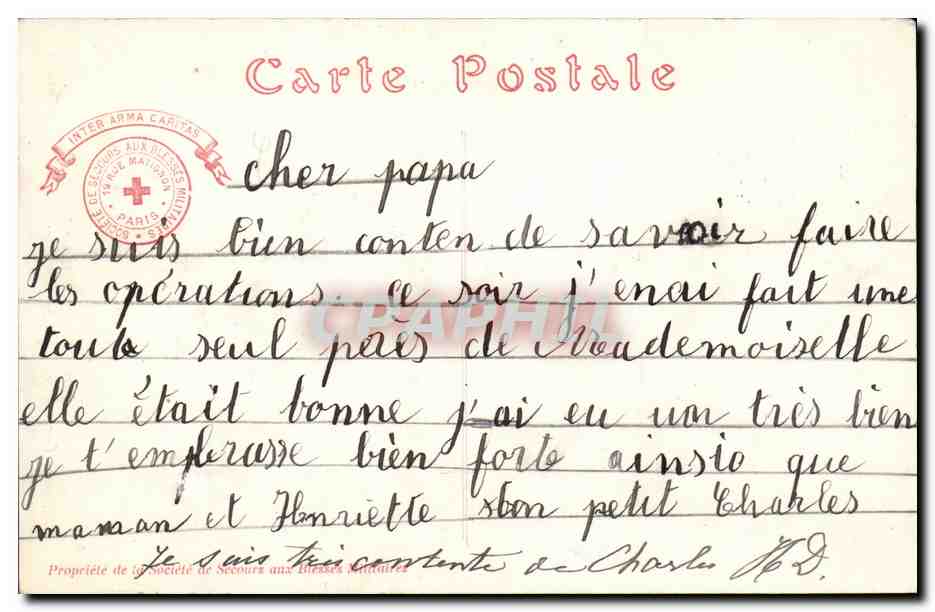 Carte Postale
INTER ARMA CARITAS
SOCIÉTÉ DE SECOURS AUX BLESSÉS MILITAIRES
19 RUE MATIGNON
PARIS
cher papa
je suis bien conten de savoir faire
les opérations. ce soir j'enai fait une
toute seul pérès de Mademoiselle
elle était bonne j'ai eu un très bien
je t'embrasse bien forte ainsio que
maman et Henriette ston petit Charles
Je suis très contente de Charles HD.
Propriété de la Société de Secours aux Blessés Militaires
CPAPHIL